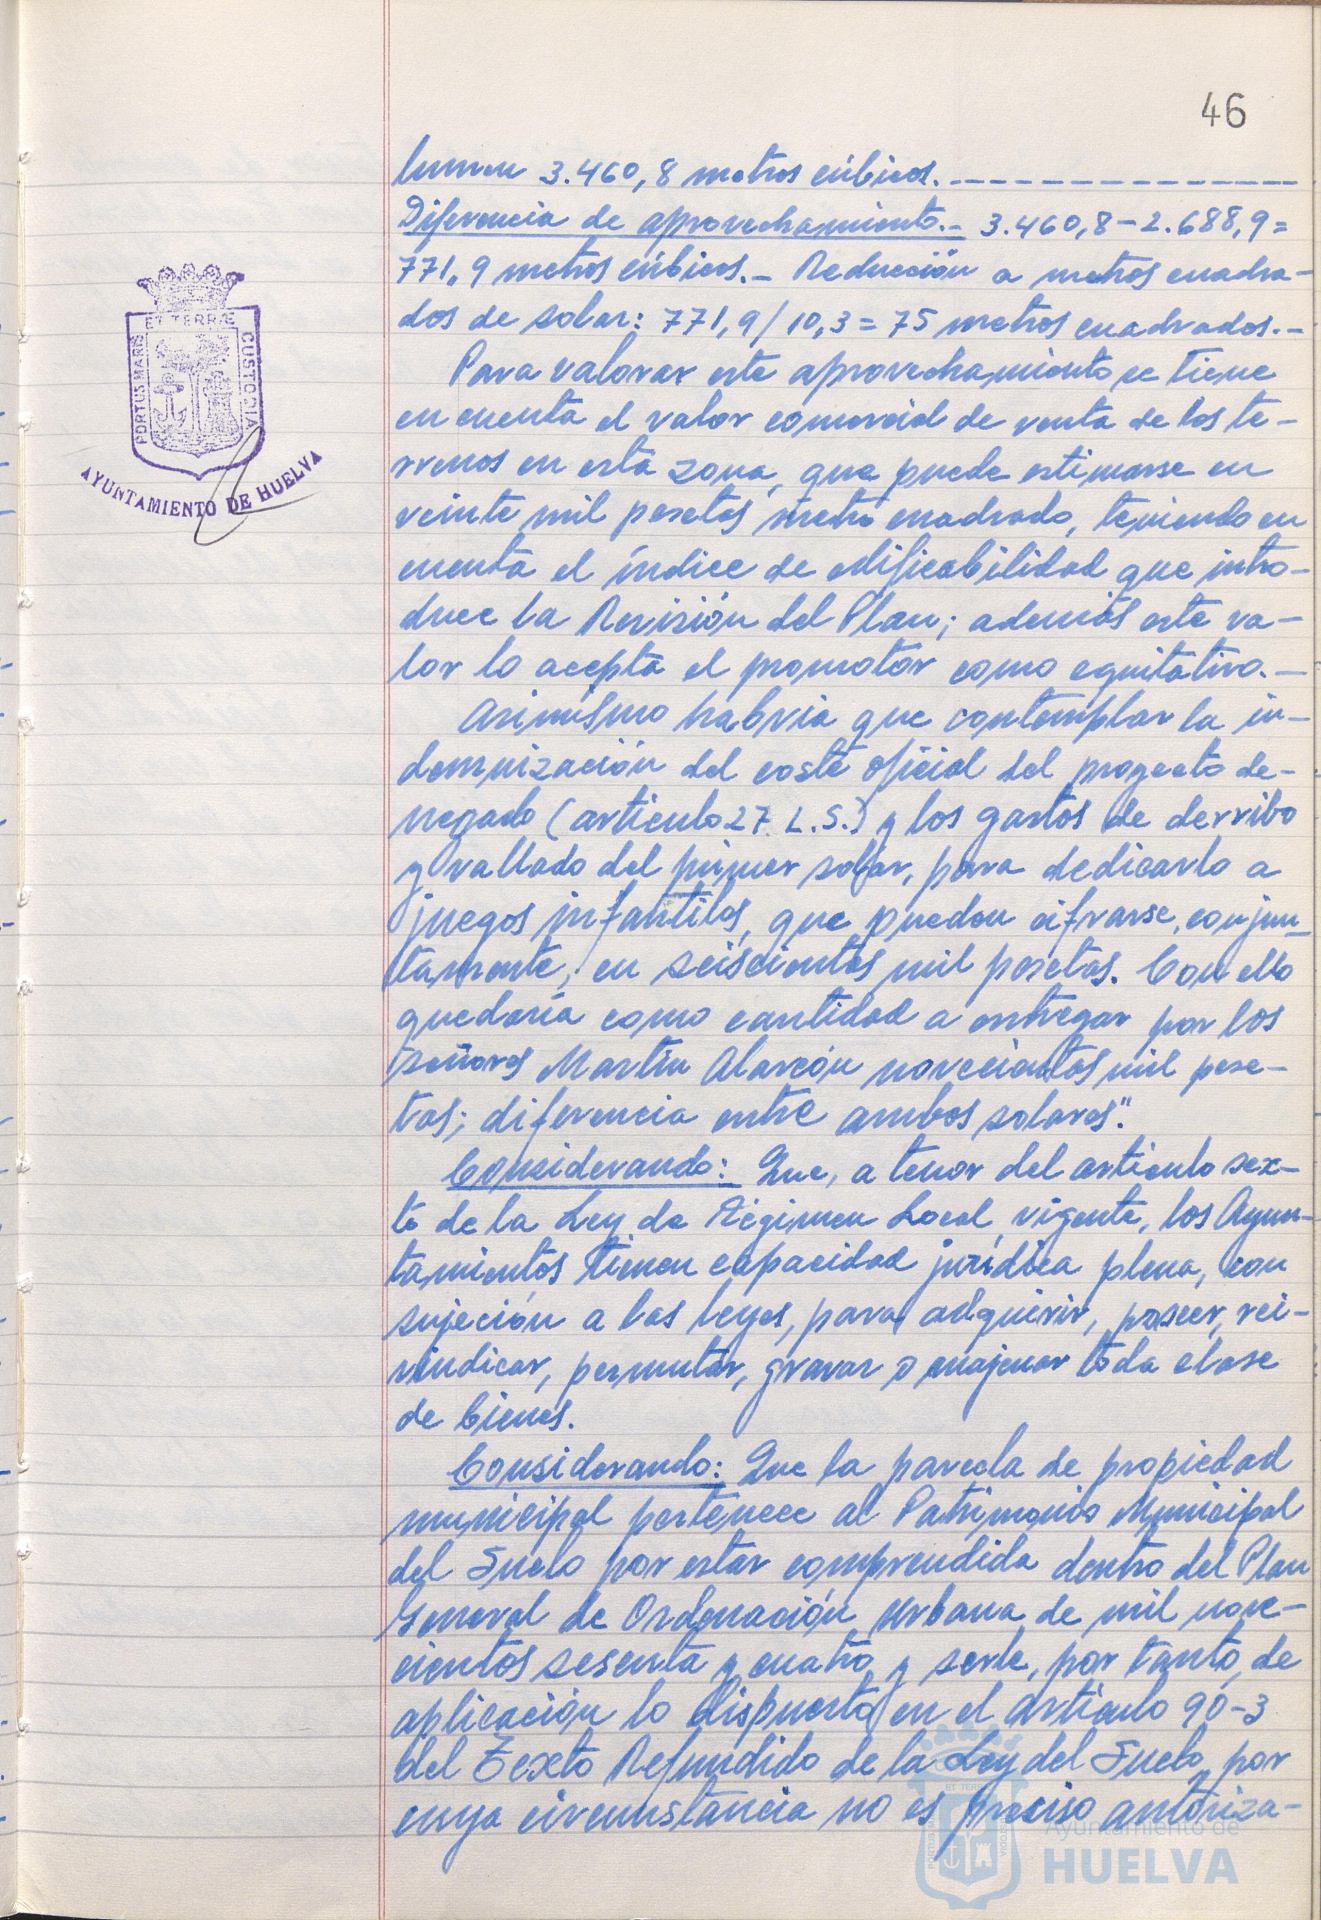 46
lumen 3.460,8 metros cúbicos. _ _ _ _ _ _ _ _ _ _ _ _ _
Diferencia de aprovechamiento.- 3.460,8-2.688,9=
771,9 metros cúbicos._ Reducción a metros cuadra-
dos de solar: 771,9/10,3=75 metros cuadrados.-
Para valorar este aprovechamiento se tiene
en cuenta el valor comercial de venta de los te-
rrenos en esta zona, que puede estimarse en
veinte mil pesetas metro cuadrado, teniendo en
cuenta el índice de edificabilidad que intro-
duce la Revisión del Plan; además este va-
lor lo acepta el promotor como equitativo.-
Asimismo habría que contemplar la in-
demnización del coste oficial del proyecto de-
negado (artículo 27 L.S.) y los gastos de derribo
y vallado del primer solar, para dedicarlo a
juegos infantiles, que pueden cifrarse, conjun-
tamente, en seiscientas mil pesetas. Con ello
quedaría como cantidad a entregar por los
señores Martín Alarcón novecientas mil pese-
tas; diferencia entre ambos solares".
Considerando: Que, a tenor del artículo sex-
to de la Ley de Régimen Local vigente, los Ayun-
tamientos tienen capacidad jurídica plena, con
sujeción a las leyes, para adquirir, poseer, rei-
vindicar, permutar, gravar o enajenar toda clase
de bienes.
Considerando: Que la parcela de propiedad
municipal pertenece al Patrimonio Municipal
del Suelo por estar comprendida dentro del Plan
General de Ordenación Urbana de mil nove-
cientos sesenta y cuatro y serle, por tanto, de
aplicación lo dispuesto en el artículo 90-3
del Texto Refundido de la Ley del Suelo, por
cuya circunstancia no es preciso autoriza-
PORTUS MARIS
ET TERRÆ
CUSTODIA
AYUNTAMIENTO DE HUELVA
Ayuntamiento de
HUELVA